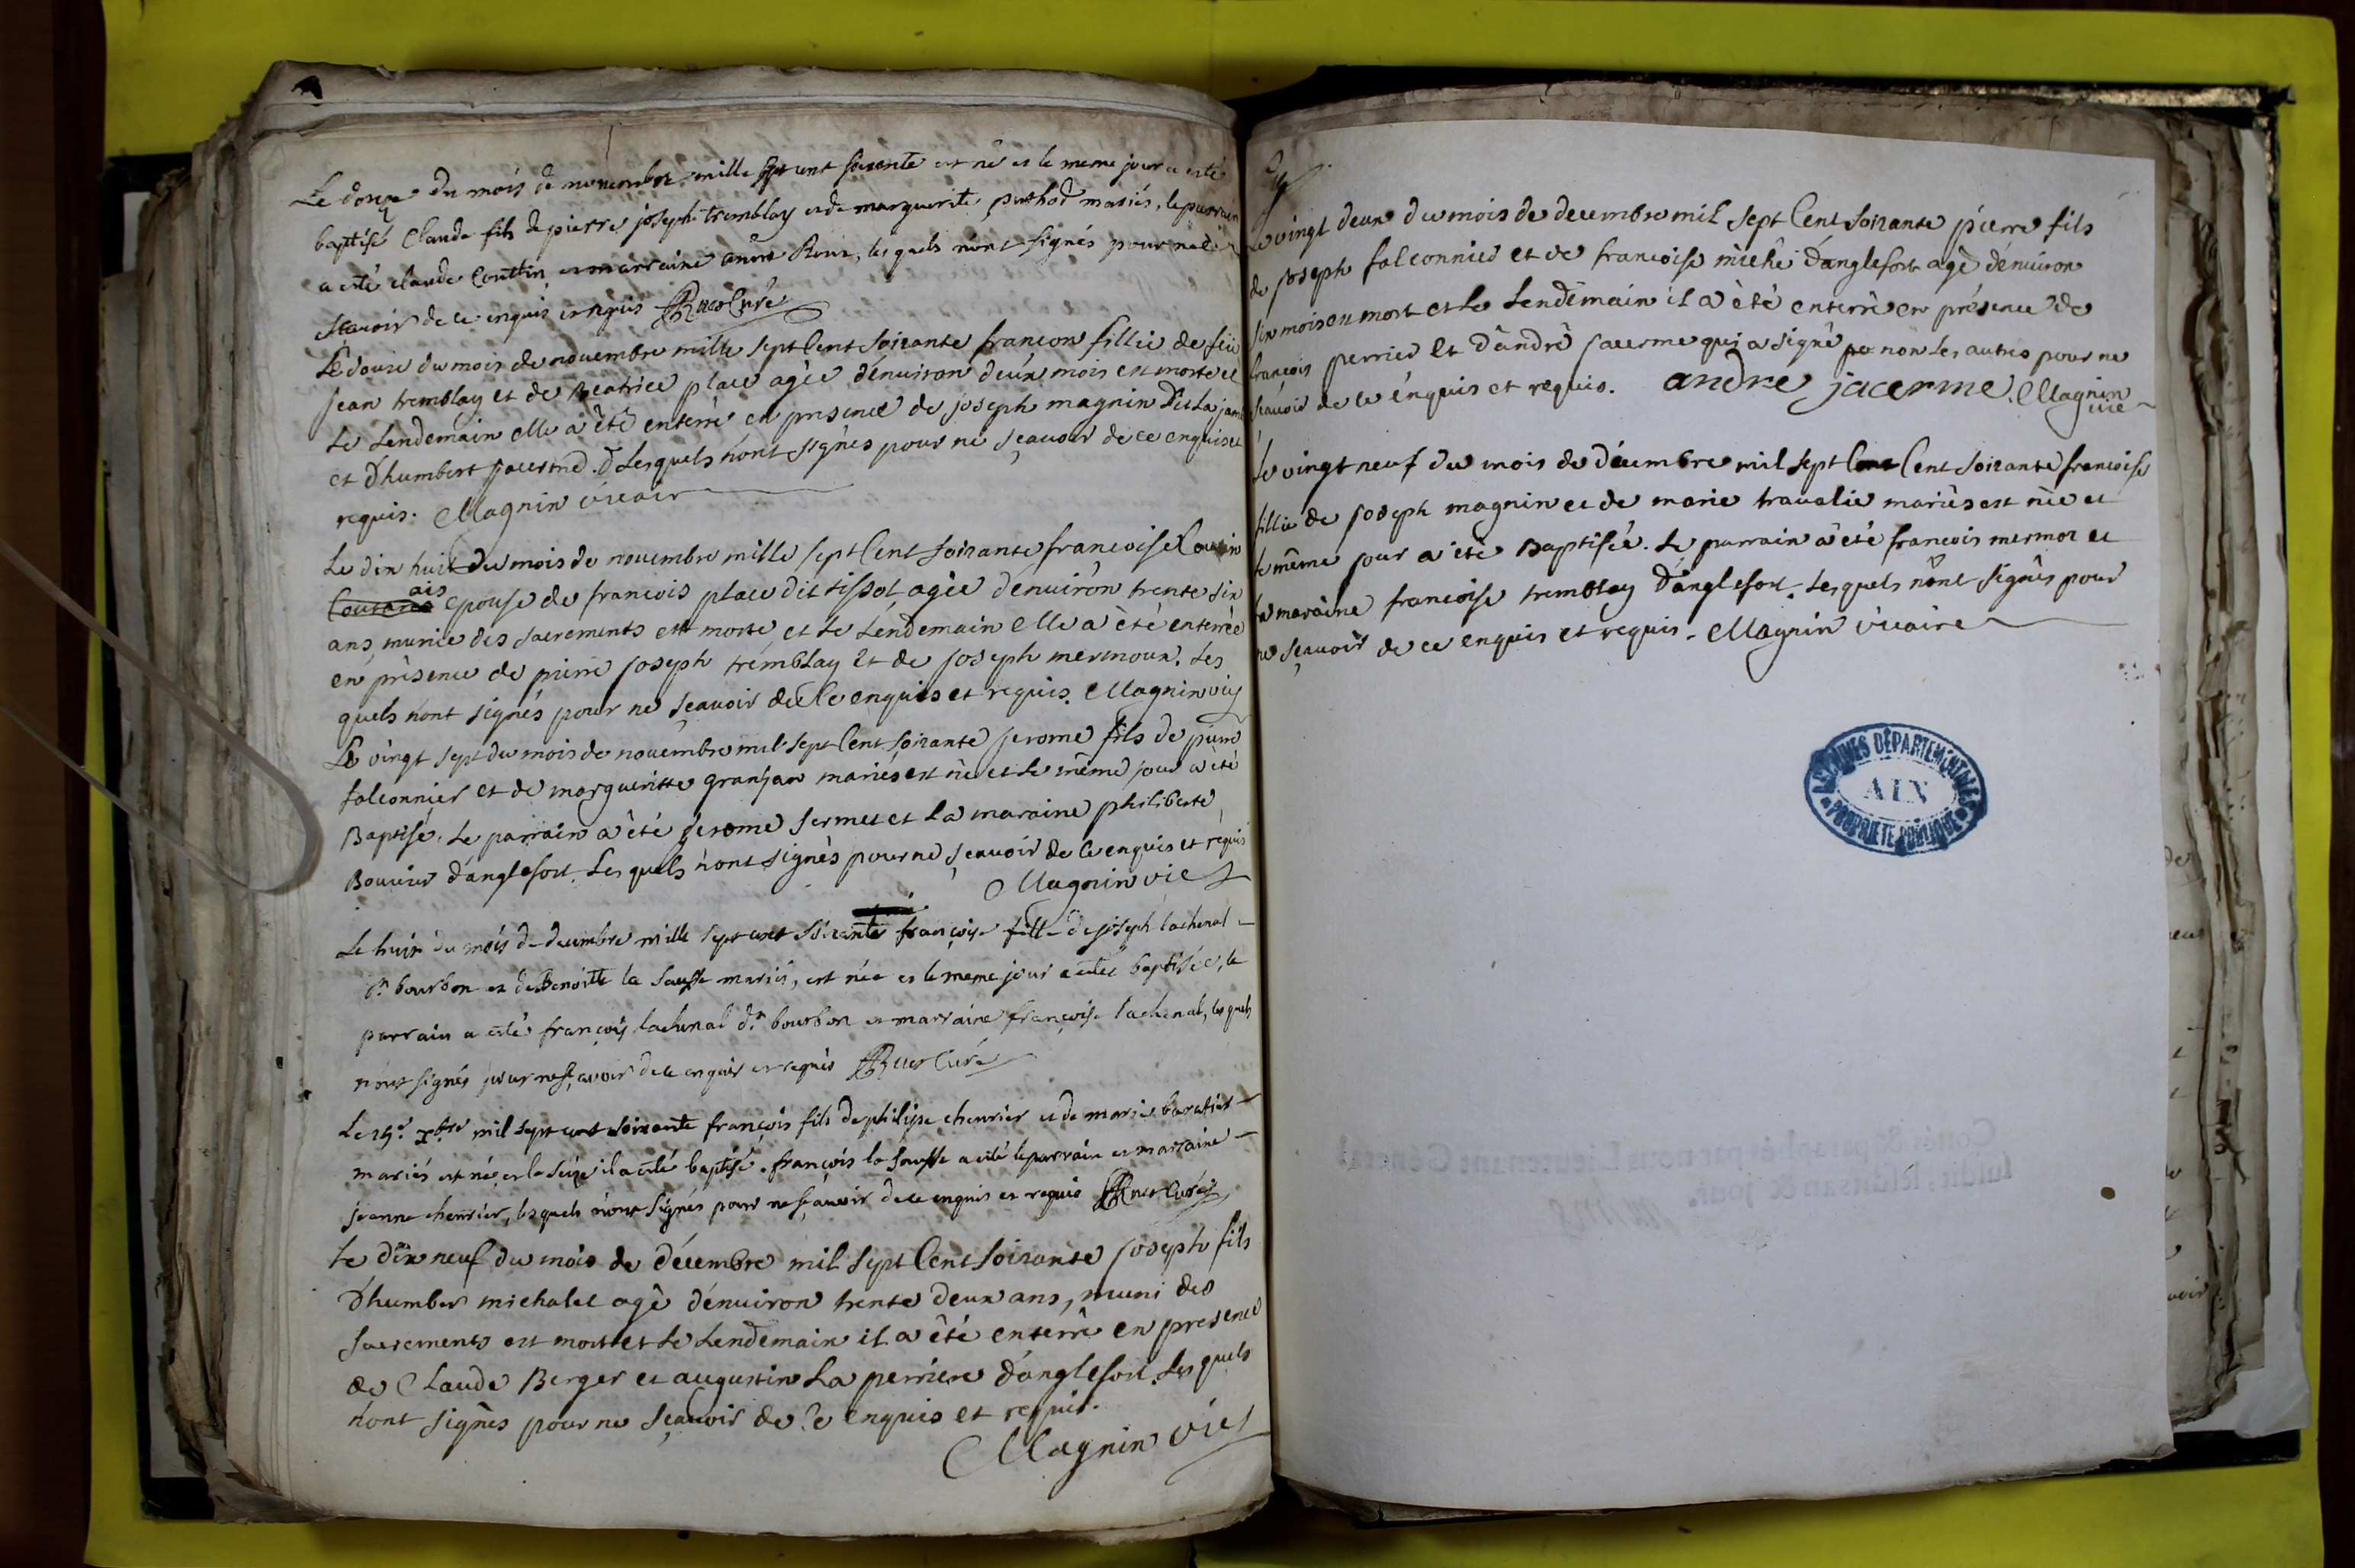 Le douze du mois de novembre mille sept cent soixante est né et le meme jour a esté
baptisé Claude fils de pierre joseph tremblay et de marguerite puthod mariés, le parrain
a esté claude Couttin et marraine Roux, les quels n'ont signés pour ne le
sçavoir de ce enquis et requis Curé
Le douze du mois de novembre mille sept Cent soixante francon fillie de feu
jean tremblay et de Beatrice place agèe d'enuiron deux mois est morte et
Le Lendemain elle a èté enterré en presence de joseph magnin Dit La jam
et D'humbert jacerme. Lesquels n'ont signés pour ne sçavoir de ce enquis et
requis. Magnin vicair
Le dix huit du mois de novembre mille sept Cent soixante francoise
ais
epouse de francois place dit tissot agèe d'enuiron trente six
ans, munie des sacrements est morte et Le Lendemain elle a èté enterrée
en prèsence de pierre joseph trémblay et de joseph mermoux. Les
quels n'ont signés pour ne sçavoir de Ce enquis et requis. Magnin vic
Le vingt sept du mois de novembre mil sept Cent soixante jerome fils de pierre
falconnier et de margueritte granjan mariés est né et le même jour a èté
Baptisé. Le parrain a èté jerome sermet et La maraine philiberte
Bouvier d'anglefort. Les quels n'ont signés pour ne sçavoir de Ce enquis et requis
Magnin vic
Le huit du mois de decembre mille sept cent soixante françoise fille de joseph lachenal
dt bourbon et de Benoitte la sausse mariés, est née et le meme jour a estée baptisée, le
parrain a esté françois lachenal dt bourbon et marraine françoise lachenal, les quels
n'ont signés pour ne sçavoir de ce enquis et requis Curé
Le 15e xbre mil sept cent soixante françois fils de philipe chevrier et de marie baratier
mariés est né, et le seize il a esté baptisé. françois la sausse a esté le parrain et marraine
jeanne chevrier, lesquels n'ont signés pour ne sçavoir de ce enquis et requis Curé
Le dix neuf du mois de décembre mil sept Cent soixante joseph fils
D'humber michalet agé d'enuiron trente deux ans, muni des
sacrements est mort et Le Lendemain il a èté enterré en presence
de Claude Berger et augustin La perriere d'anglefort. Les quels
n'ont signès pour ne sçavoir de Ce enquis et requis.
Magnin vic
Le vingt deux du mois de decembre mil sept Cent soixante pierre fils
de joseph falconnier et de francoise miché d'anglefort agé d'enuiron
six mois est mort et Le Lendemain il a èté enterré en présence de
francois perrier et d'andré jacerme qui a signé non Les autres pour ne
sçavoir de ce enquis et requis. andre jacerme. Magnin
vic
Le vingt neuf du mois de décembre mil sept Cent soixante francoise
fillie de joseph magnin et de marie travalie mariès est née et
le même jour a èté Baptisée. Le parrain a èté francois mermoz et
la maraine francoise tremblay d'anglefort. Lesquels n'ont signés pour
ne sçavoir de ce enquis et requis. Magnin vicaire
ARCHIVES DÉPARTEMENTALES
AIN
PROPRIÉTÉ PUBLIQUE